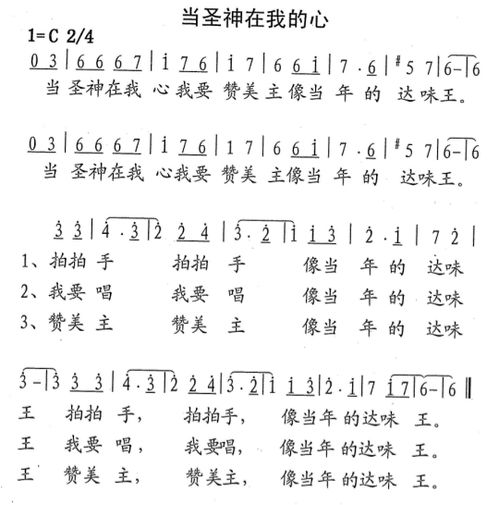 当圣神在我的心
1=C 2/4
0 3|6 6 6 7|i 7 6|i 7|6 6 i|7 . 6|#5 7|6-|6
当 圣神在我 心我要 赞美 主像当 年 的 达味王。
0 3|6 6 6 7|i 7 6|1 7|6 6 i|7 . 6|#5 7|6-|6
当 圣神在我 心我要 赞美 主像当 年 的 达味王。
3 3|4 . 3|2 2 4|3 . 2|i i 3|2 . i|7 2|
1、拍拍 手 拍拍 手 像当 年 的 达味
2、我要 唱 我要 唱 像当 年 的 达味
3、赞美 主 赞美 主 像当 年 的 达味
3-|3 3 3|4 . 3|2 2 4|3 . 2|i i 3|2 . i|7 i 7|6-|6‖
王 拍拍 手， 拍拍手， 像当年 的达味 王。
王 我要 唱， 我要唱， 像当年 的达味 王。
王 赞美 主， 赞美主， 像当年 的达味 王。